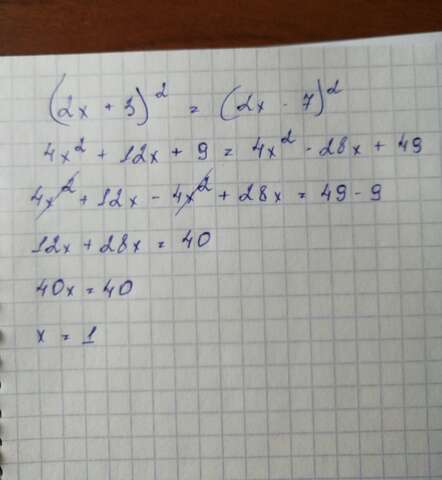 (2x + 3)² = (2x - 7)²
4x² + 12x + 9 = 4x² - 28x + 49
4x² + 12x - 4x² + 28x = 49 - 9
12x + 28x = 40
40x = 40
x = 1